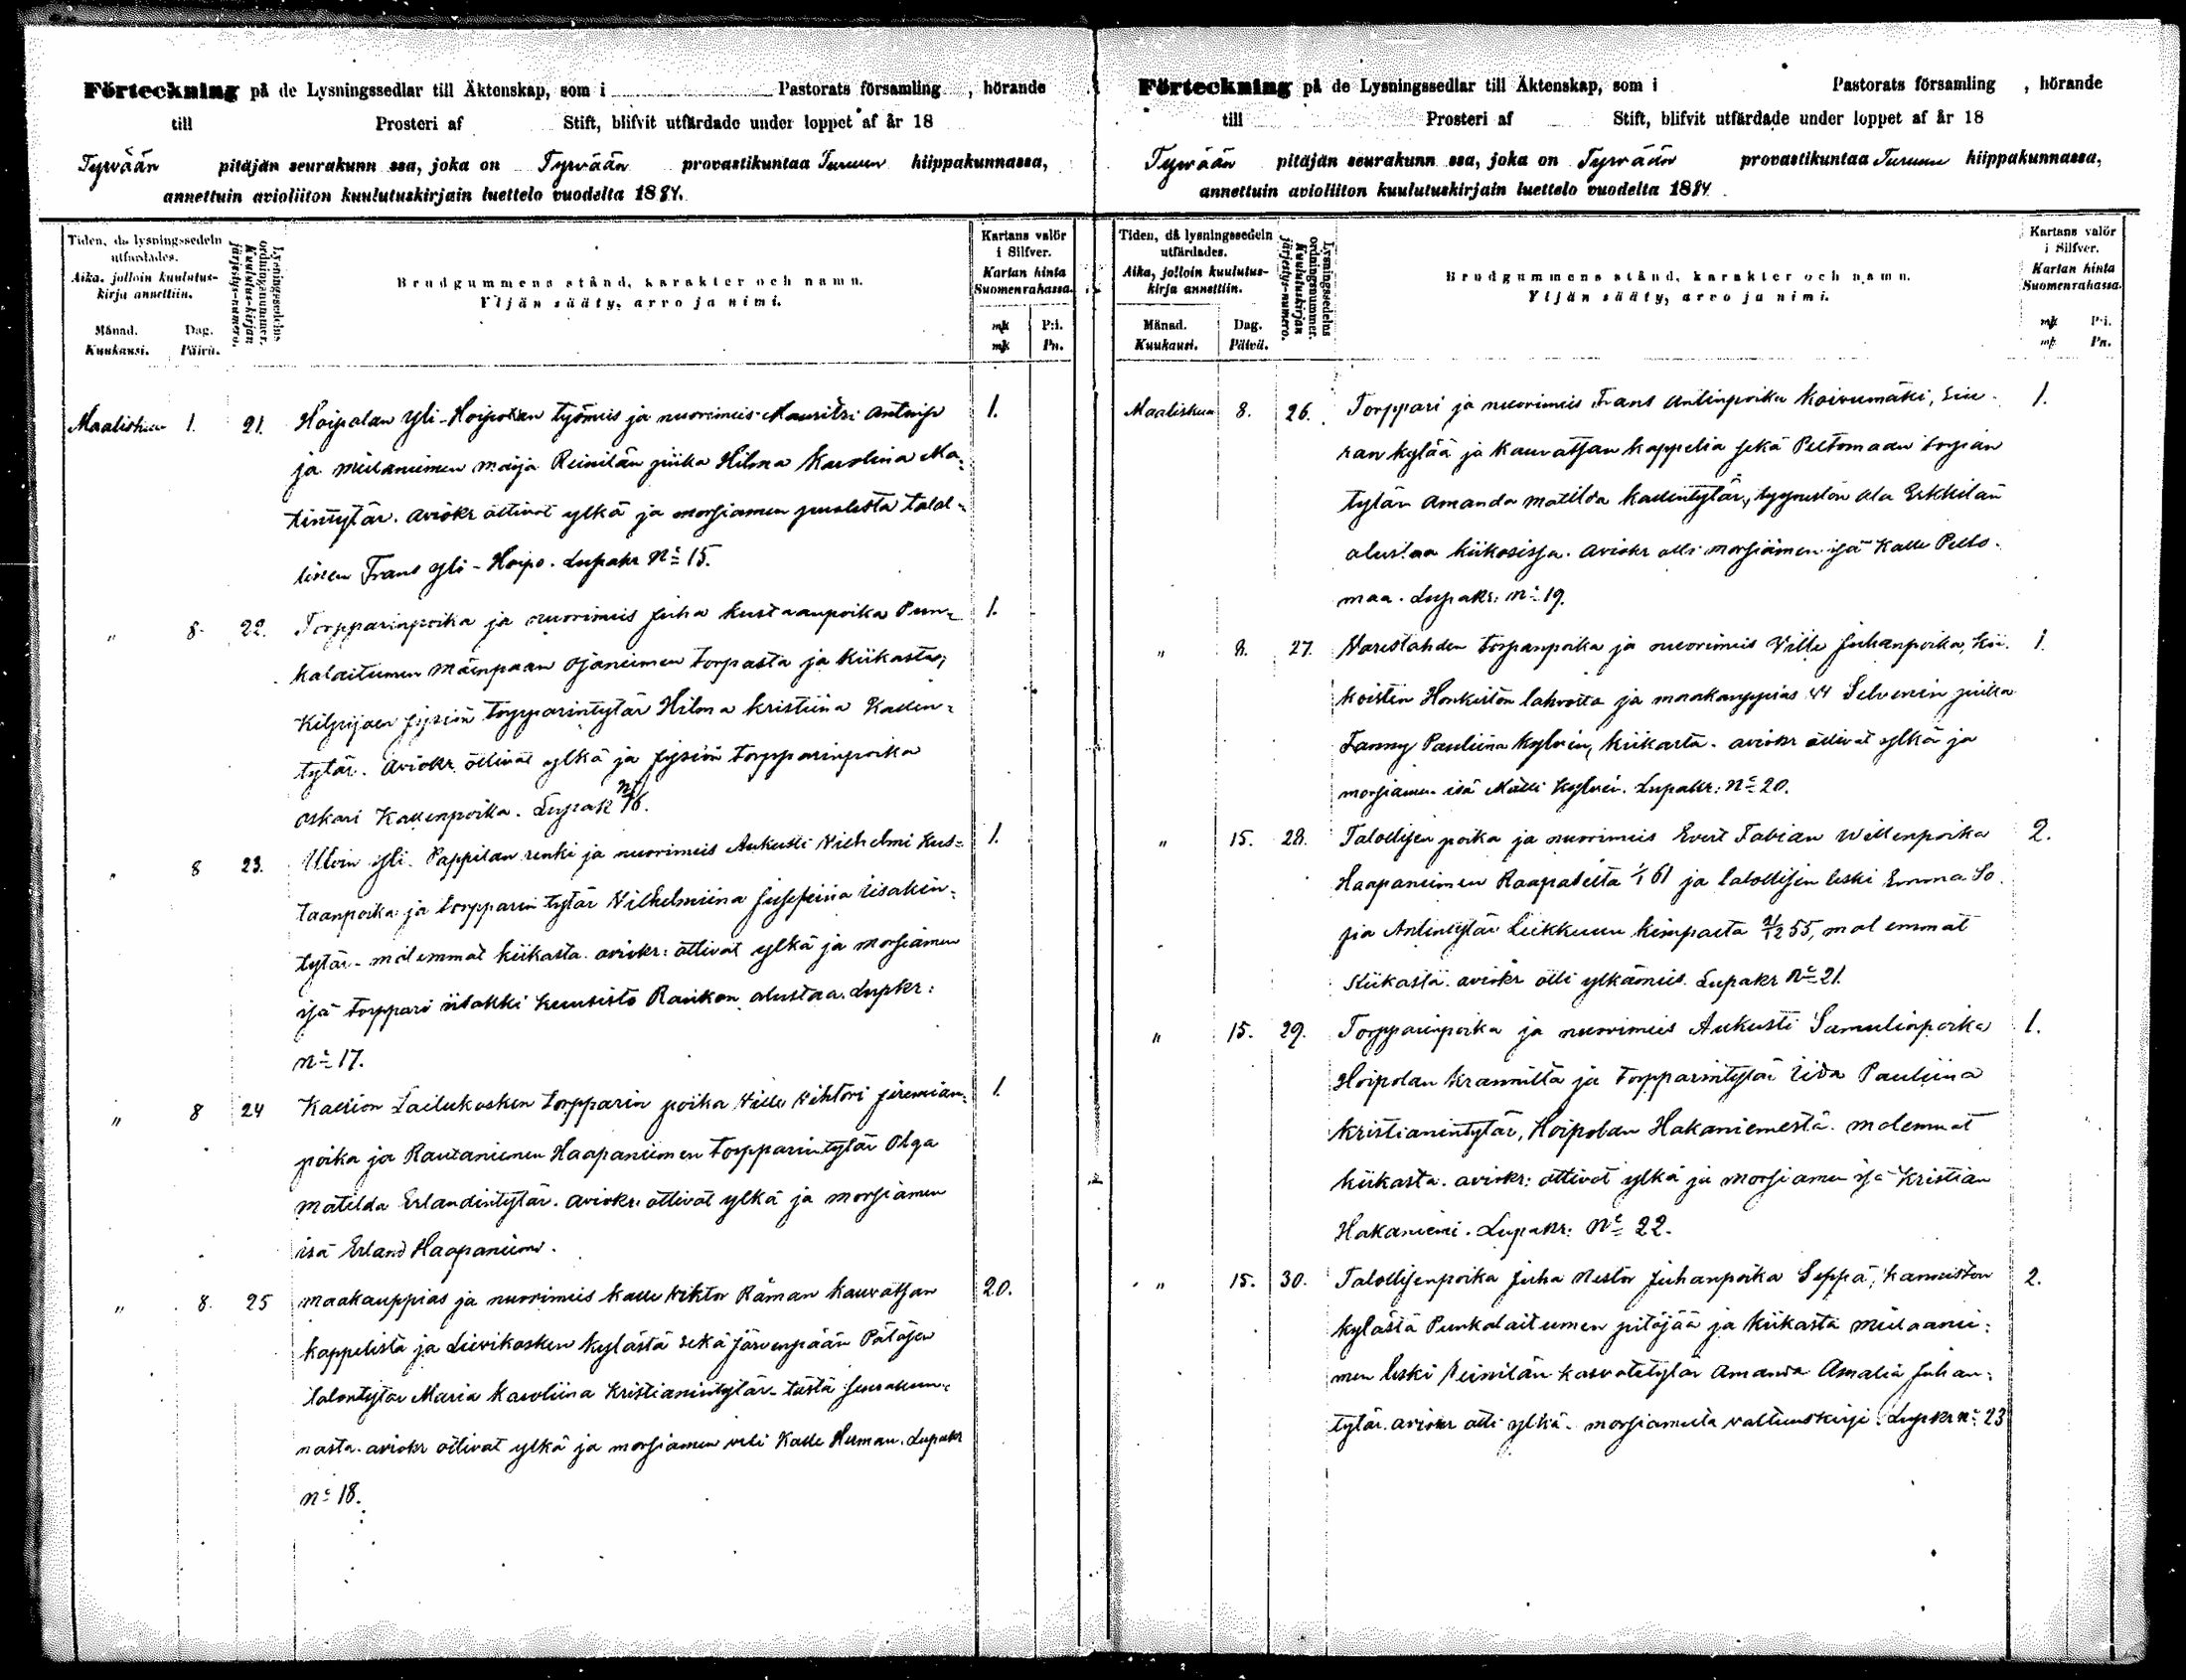 Förteckning på de Lysningssedlar till Äktenskap, som i Pastorats församling , hörande
till Prosteri af Stift, blifvit utfärdade under loppet af år 18
Tyrvään pitäjän seurakunn ssa, joka on Tyrvään provastikuntaa Turun hiippakunnassa,
annettuin avioliiton kuulutuskirjain luettelo vuodelta 1884.
Tiden, då lysningssedeln
utfärdades.
Aika, jolloin kuulutus-
kirja annettiin.
Månad. Dag.
Kuukausi. Päivä.
Lysningssedelns
ordningsnummer.
Kuulutuskirjan
järjestys-numero.
Brudgummens stånd, karakter och namn.
Yljän sääty, arvo ja nimi.
Kartans valör
i Silfver.
Kartan hinta
Suomenrahassa.
mk P:i.
mk Pn.
Maaliskuu 1. 21. Hoipolan Yli-Hoipolan työmies ja nuorimies Mauritsi Antinp 1.
ja Meilaniemen Maija Reinilän piika Hilma Karolina Ma-
tintytär. Aviokr ottivat ylkä ja morsiamen puolesta talol-
linen Frans Yli-Hoipo. Lupakr No 15.
" 8. 22. Torpparinpoika ja nuorimies Juha Kustaanpoika Pun- 1.
kalaitumen Mäenpään Ojaniemen torpasta ja Kiikasta,
Kilpijoen torpparintytär Hilma Kristiina Kallen-
tytär. Aviokr. ottivat ylkä ja torpparinpoika
Oskari Kallenpoika. Lupak No 16.
" 8 23. Ulvin Yli-Pappilan renki ja nuorimies Aukusti Vilhelmi Kus- 1.
taanpoika ja torpparin tytär Vilhelmiina Josefiina Iisakin-
tytär - molemmat Kiikasta. aviokr: ottivat ylkä ja morsiamen
isä torppari Iisakki Kuusisto Raukon alustaa. Lupkr:
No 17.
" 8 24 Kallion Lailukosken torpparin poika Ville Vihtori Jeremian- 1.
poika ja Rautaniemen Haapaniemen torpparintytär Olga
Matilda Erlandintytär. Aviokr: ottivat ylkä ja morsiamen
isä Erland Haapaniemi.
" 8. 25 Maakauppias ja nuorimies Kalle Viktor Råman Kauvatsan 20.
kappelista ja Lievikosken kylästä sekä Järvenpään Pätäjen
talontytär Maria Karoliina Kristianintytär tästä seurakun-
nasta. aviokr ottivat ylkä ja morsiamen veli Kalle Herman. Lupakr
No 18.
Förteckning på de Lysningssedlar till Äktenskap, som i Pastorats församling , hörande
till Prosteri af Stift, blifvit utfärdade under loppet af år 18
Tyrvään pitäjän seurakunn ssa, joka on Tyrvään provastikuntaa Turun hiippakunnassa,
annettuin avioliiton kuulutuskirjain luettelo vuodelta 1884.
Tiden, då lysningssedeln
utfärdades.
Aika, jolloin kuulutus-
kirja annettiin.
Månad. Dag.
Kuukausi. Päivä.
Lysningssedelns
ordningsnummer.
Kuulutuskirjan
järjestys-numero.
Brudgummens stånd, karakter och namn.
Yljän sääty, arvo ja nimi.
Kartans valör
i Silfver.
Kartan hinta
Suomenrahassa.
mk P:i.
mk Pn.
Maaliskuu 8. 26. Torppari ja nuorimies Frans Antinpoika Koivumäki, 1.
ran kylää ja Kauvatsan kappelia sekä Peltomaan torpan
tytär Amanda Matilda Kallentytär, Ala Erkkilän
alustaa Kiikosissa. Aviokr otti morsiamen isä Kalle Pelto-
maa. Lupakr: No 19.
" 8. 27. torpanpoika ja nuorimies Ville Juhanpoika, Kii- 1.
koisten Honkiston lahvosta ja maakauppias piika
Fanny Pauliina Kylvein, Kiikasta. aviokr ottivat ylkä ja
morsiamen isä Matti Kylvein. Lupakr: No 20.
" 15. 28. Talollisen poika ja nuorimies Evert Fabian Willenpoika 2.
Haapaniemen 1/1 61 ja talollisen leski Emma So-
fia Antintytär Liekkunen 21/12 55, molemmat
Kiikasta. aviokr otti ylkämies. Lupakr No 21.
" 15. 29. Torpparinpoika ja nuorimies Aukusti Samulinpoika 1.
Hoipolan Krannilta ja torpparintytär Iida Pauliina
Kristianintytär, Hoipolan Hakaniemestä. molemmat
Kiikasta. aviokr: ottivat ylkä ja morsiamen isä Kristian
Hakaniemi. Lupakr: No 22.
" 15. 30. Talollisenpoika Juha Nestor Juhanpoika Seppä, Kanniston 2.
kylästä Punkalaitumen pitäjää ja Kiikasta Meilaanie-
men leski Reinilän kasvatetytär Amanda Amalia Juhan-
tytär. aviokr otti ylkä. morsiamelta valtuuskirja. Lupkr No 23